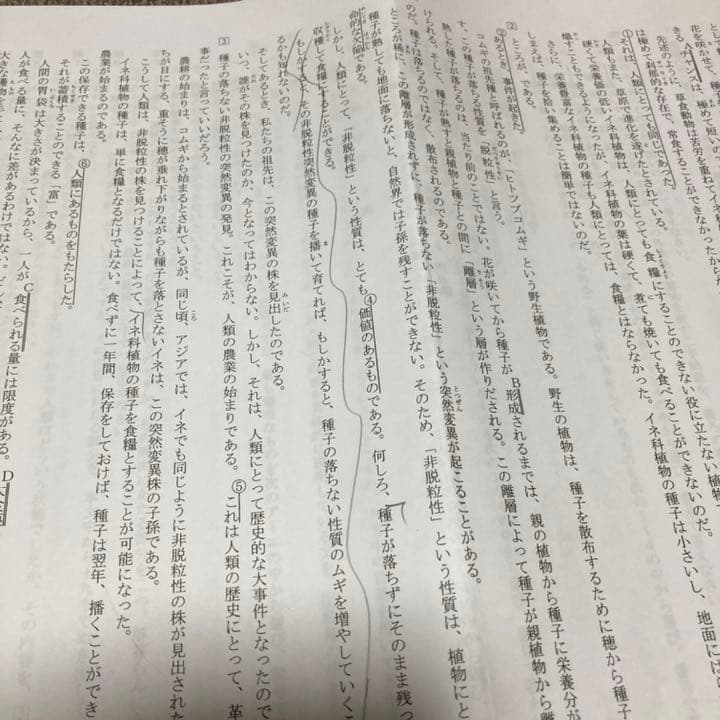 花を咲かせて、種
きるチャンスは、極めて短いの
先述のように、草食動物は苦労を重ねてイネ
①それは、人類にとっても同じであった。
は極めて特別な存在で、常食することができ
人類もまた、草原で進化を遂げたとされている。
しかし、人類にとっても食糧にすることのできない役に立たない植物
硬くて栄養価の低いイネ科植物は、煮ても焼いても食べることができないのだ。
さらに、栄養豊富なイネ科植物の種子も人類にとっては、食糧とはならなかった。イネ科植物の種子は小さいし、地面には
しまえば、種子を拾い集めることは簡単ではないのだ。
2 ところが、である。
②あるとき、事件が起きた。
コムギの祖先種と呼ばれるのが、「ヒトツブコムギ」という野生植物である。野生の植物は、種子を散布するために穂から種子
す。この種子が落ちる性質を「脱粒性」と言う。
熟した種子が落ちるのは、当たり前のことではない。花が咲いてから種子がB形成されるまでは、親の植物から種子に栄養分が
けられる。そして、種子が熟すと親植物と種子との間に「離層」という層が作りだされる。この離層によって種子が親植物から離
のだ。種子は落ちるのではなく、散布されるのである。
ところが稀に、この離層が形成されずに、種子が落ちない「非脱粒性」という突然変異が起こることがある。
種子が熟しても地面に落ちないと、自然界では子孫を残すことができない。そのため、「非脱粒性」という性質は、植物にと
命的な欠陥である。
しかし、人類にとって、「非脱粒性」という性質は、とても④価値のあるものである。何しろ、種子が落ちずにそのまま残っ
収穫して食糧にすることができる。
もしかすると、その非脱粒性突然変異の種子を播いて育てれば、もしかすると、種子の落ちない性質のムギを増やしていくこ
るかも知れないのだ。
そしてあるとき、私たちの祖先は、この突然変異の株を見出したのである。
いつ、誰がその株を見つけたのか、今となってはわからない。しかし、それは、人類にとって歴史的な大事件となったので
事だったと言っていいだろう。
3 種子の落ちない非脱粒性の突然変異の発見。これこそが、人類の農業の始まりである。⑤これは人類の歴史にとって、革
農耕の始まりは、コムギから始まるとされているが、同じ頃、アジアでは、イネでも同じように非脱粒性の株が見出された
ちが目にする、重そうに穂が垂れ下がりながらも種子を落とさないイネは、この突然変異株の子孫である。
こうして人類は、非脱粒性の株を見つけることによって、イネ科植物の種子を食糧とすることが可能になった。
イネ科植物の種子は、単に食糧となるだけではない。食べずに一年間、保存をしておけば、種子は翌年、播くことができ
農業が始まるのである。
この保存できる種子は、⑥人類にあるものをもたらした。
それが蓄積することのできる「富」である。
人間の胃袋は大きさが決まっているから、一人がC食べられる量には限度がある。D
人が食べる量に、そんなに差があるわけではない。
大きな獲物を